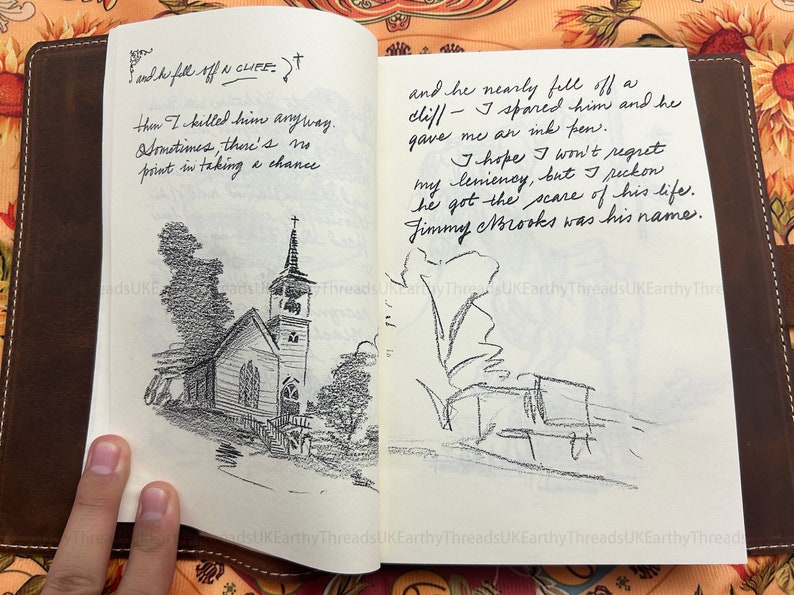 and he fell off a CLIFF.
then I killed him anyway.
Sometimes, there's no
point in taking a chance
and he nearly fell off a
cliff — I spared him and he
gave me an ink pen.
I hope I won't regret
my leniency, but I reckon
he got the scare of his life.
Jimmy Brooks was his name.
ThreadsUKEarthyThreadsUKEarthyThreadsUKEarthyThreadsUKEarthyThreadsUKEarthyThreads
ThreadsUKEarthyThreadsUKEarthyThreadsUKEarthyThreadsUKEarthyThreadsUKEarthyThreads
ThreadsUKEarthyThreadsUKEarthyThreadsUKEarthyThreadsUKEarthyThreadsUKEarthyThreads